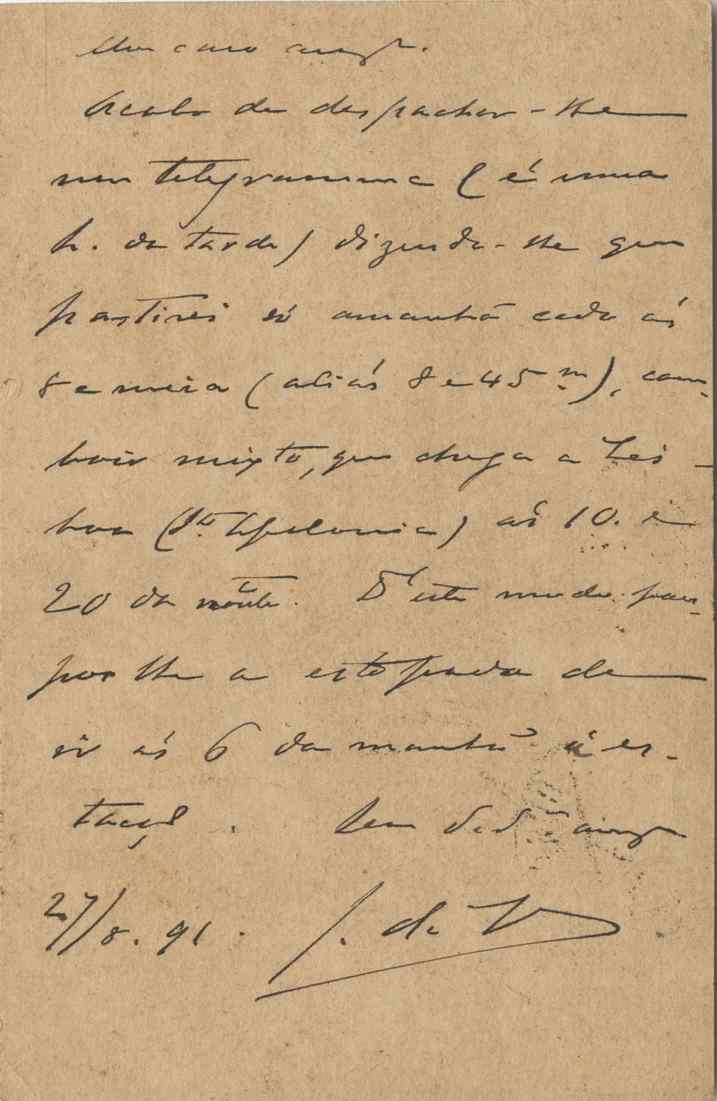 Meu caro amigo.
Acabo de despachar-lhe
um telegramma (é uma
h. da tarde) dizendo-lhe que
partirei só amanhã cedo ás
8 e meia (aliás 8 e 45 m), com-
boio mixto, que chega a Lis-
boa (Sta Apolonia) ás 10. e
20 da noute. D'este modo pou-
po-lhe a estopada de
ir ás 6 da manhã á es-
tação. Seu ded.mo amigo
27/8. 91. J. de V